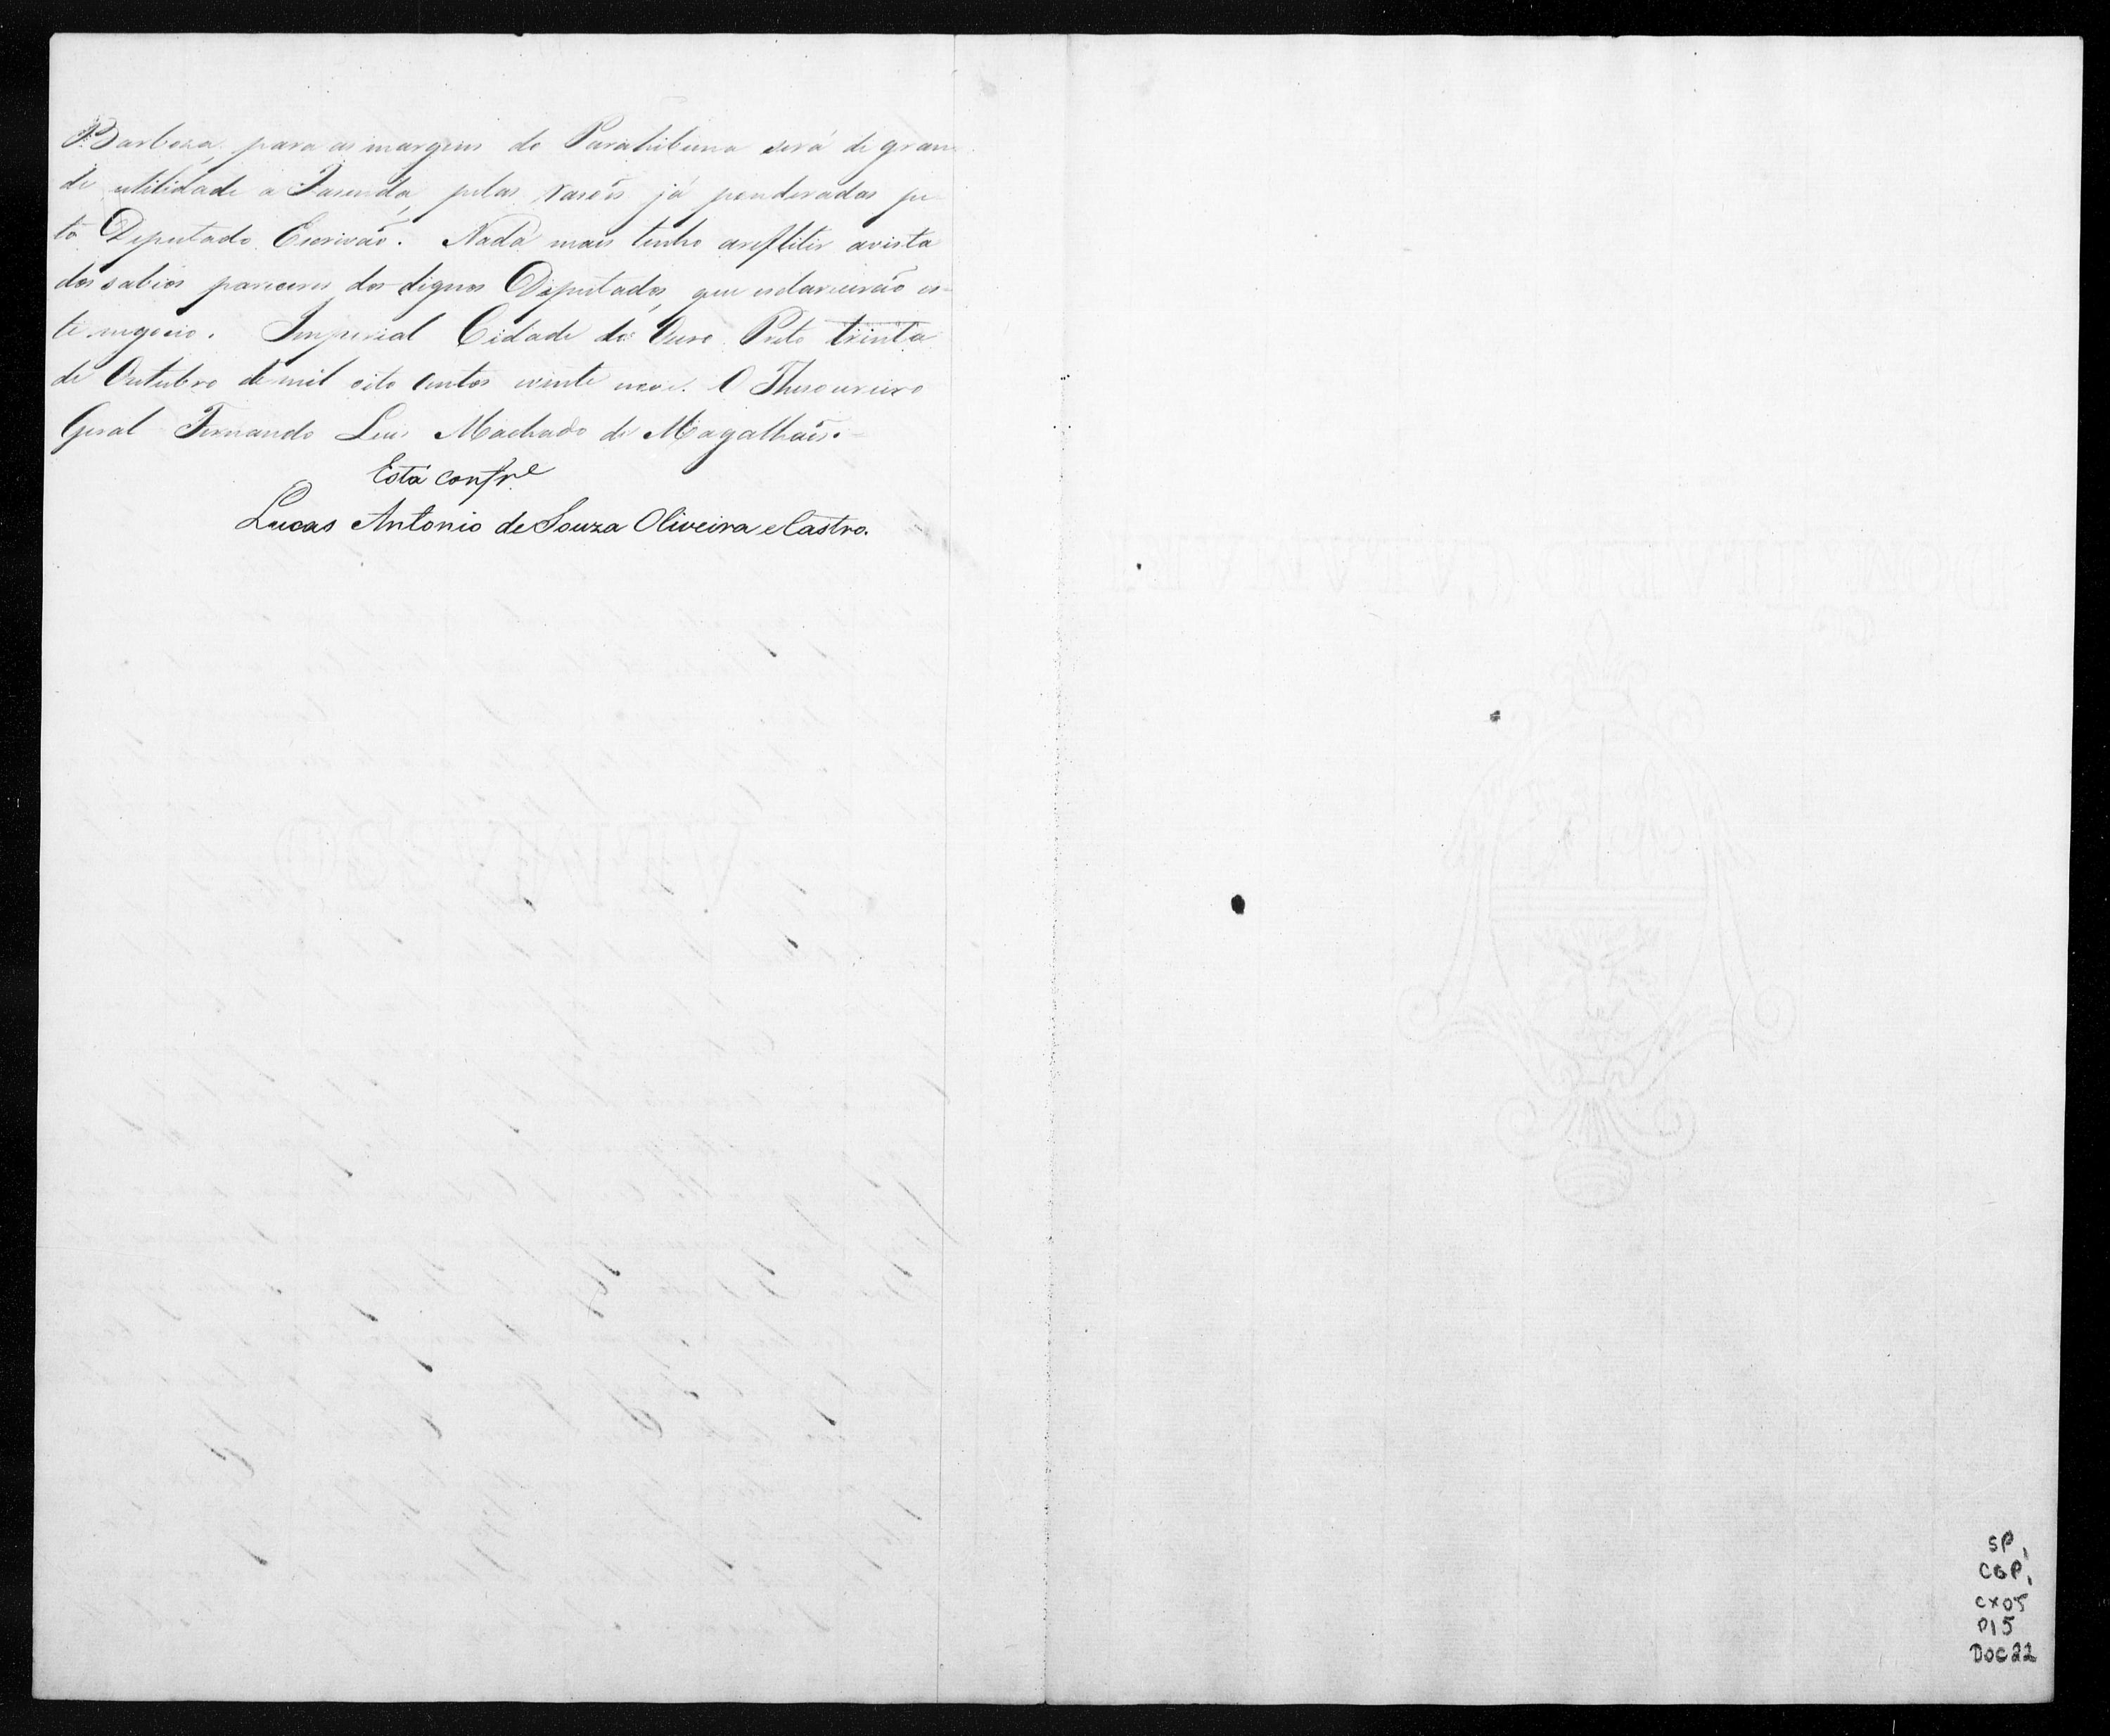 Barboza para as margens do Parahibuna será de gran
de utilidade a Fasenda, pelas rasoẽs já ponderadas pe
lo Deputado Escrivaõ. Nada mais tenho areflitir avista
dos sabios pareceres dos dignos Deputados, que esclareceraõ es-
te negocio. Imperial Cidade do Ouro Preto trinta
de Outubro de mil oito centos vinte nove. O Thesoureiro
Geral Fernando Luis Machado de Magalhaẽs.
Está confr.e
Lucas Antonio de Souza Oliveira e Castro.
SP,
CGP,
CX05
P15
DOC22